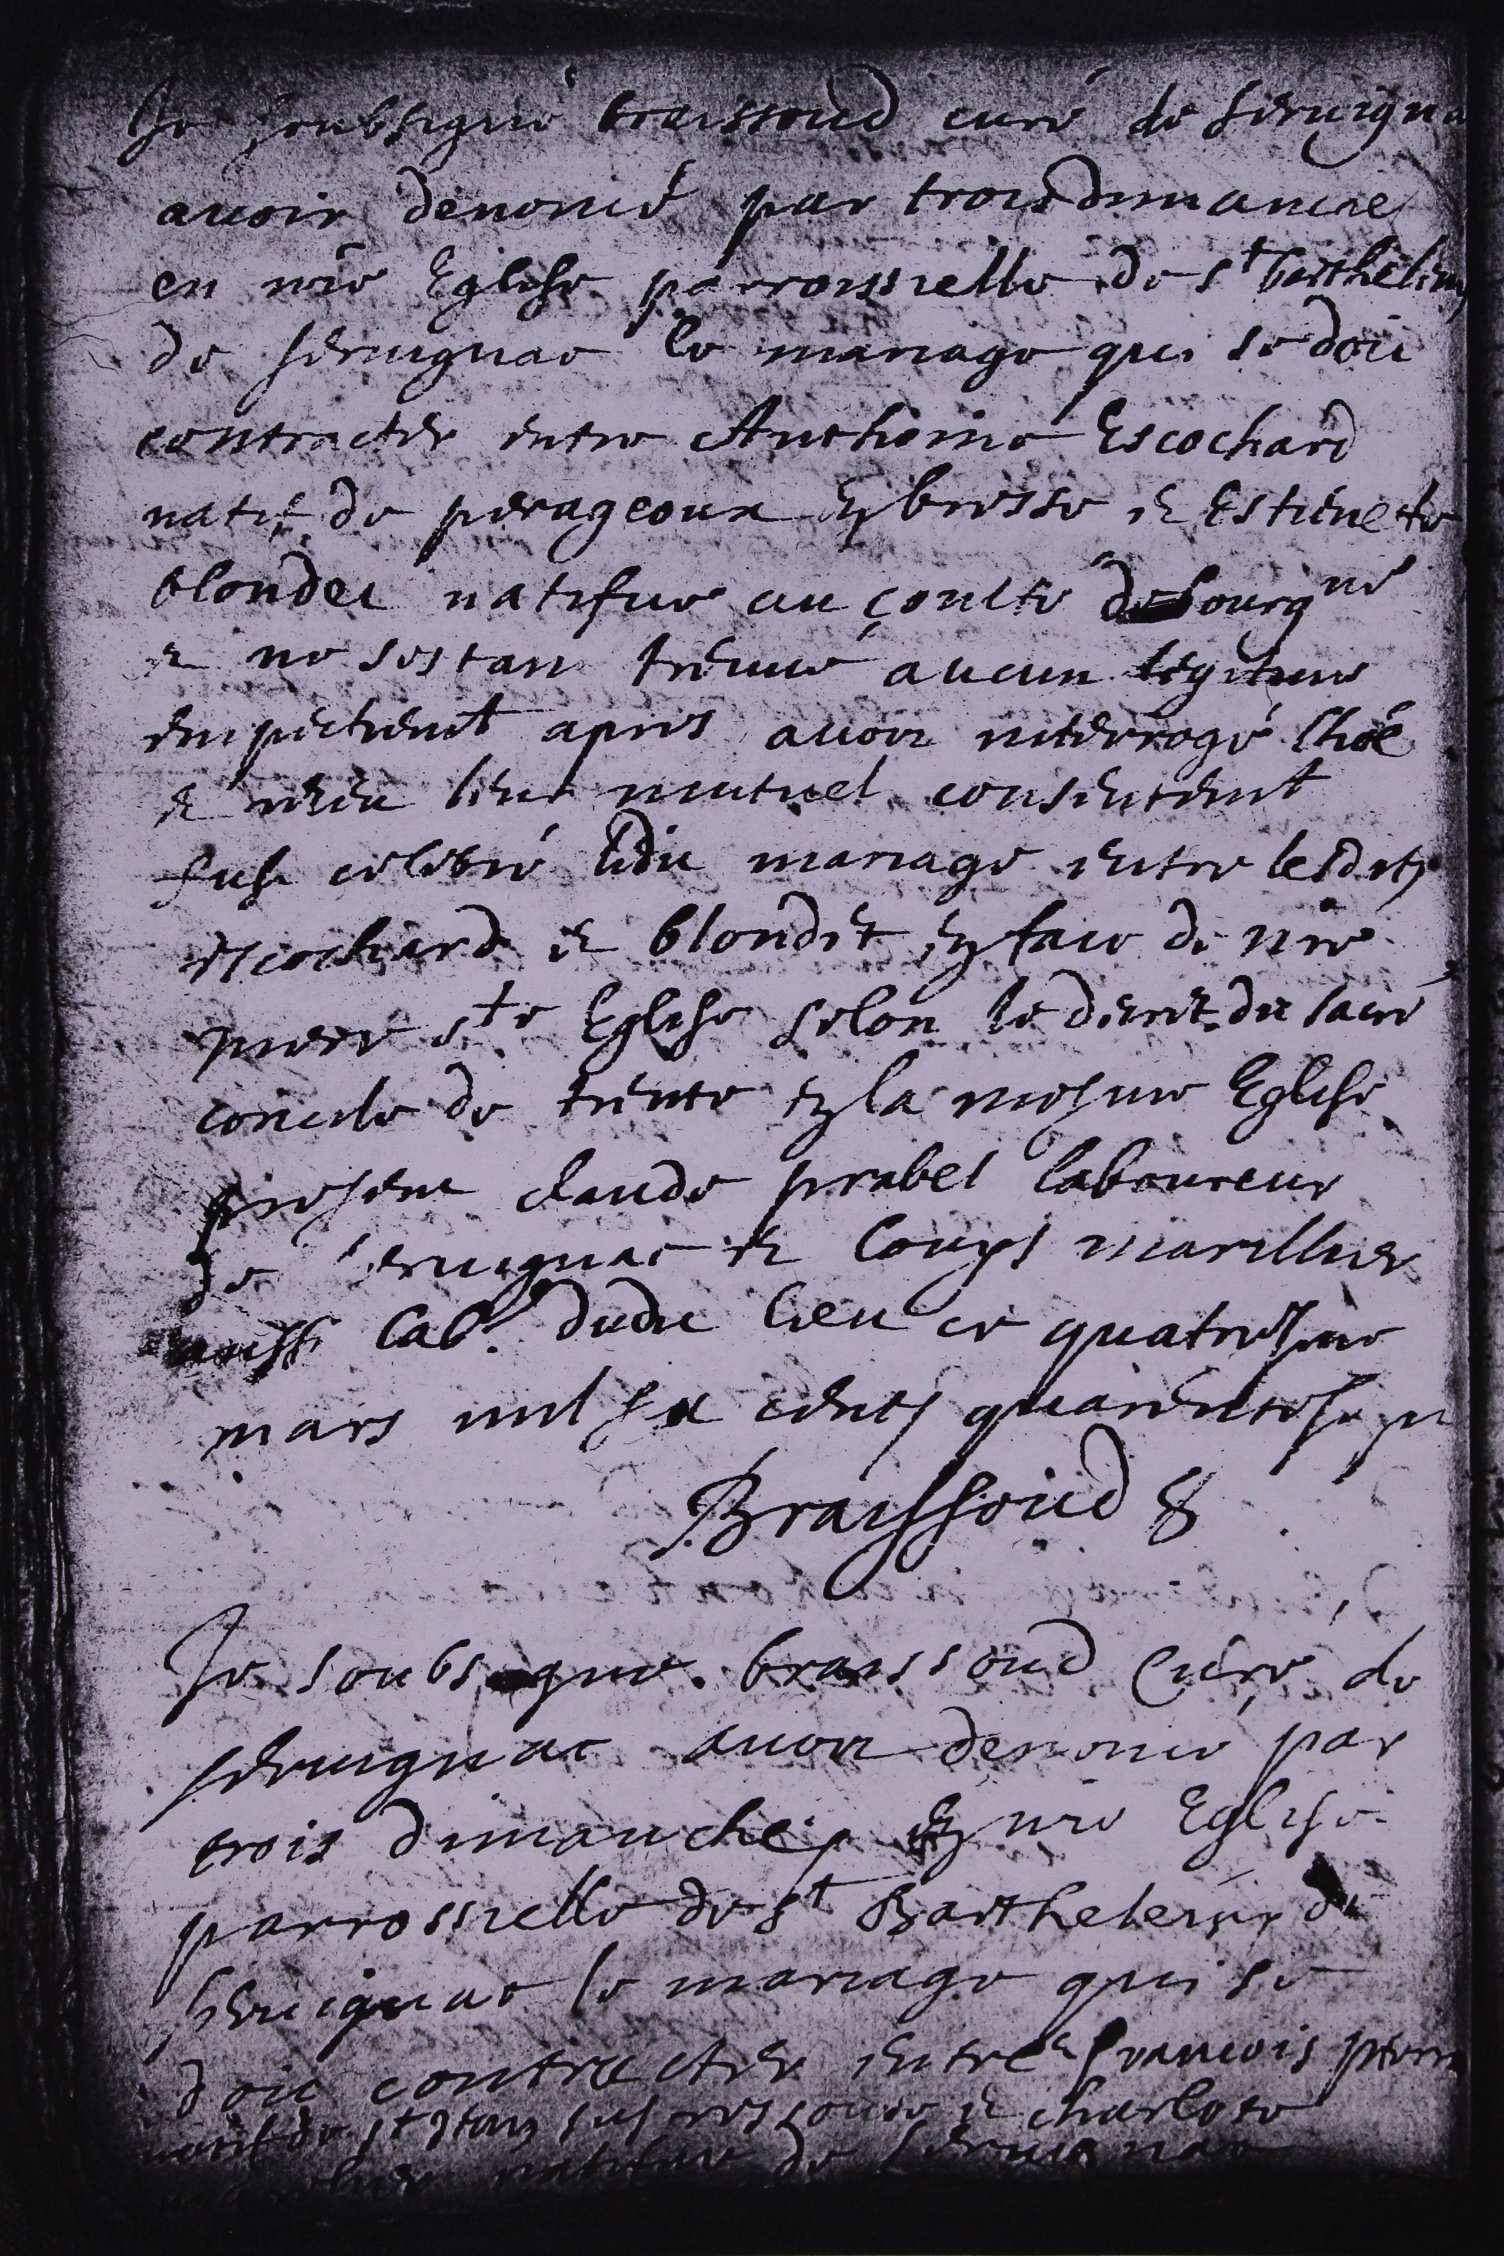 Je soubsigné braissoud curé de servigna
avoir denoncé par trois dimanche
en nre Eglise parroissielle de st barthelemy
de servignac le mariage qui se doit
contracter entre Anthoine Escochard
natif de perageoux en bresse et Estienete
blondet natifve au conte de bourgne
et ne sestan treuve aucun legitime
empechemt apres avoir interrogé
et receu leur mutuel consentemt
fust celebré ledit mariage entre lesdits
escochard et blondet en face de nre
mere ste Eglise selon le decret du sacré
concile de trente en la mesme Eglise
present claude prabel laboureur
de servignac et Louys marillier
aussi lab. dudit lieu ce quatriesme
mars mil six cents quarente
Braissoud
Je soubsigne braissoud Curé de
servignac avoir denoncé par
trois dimanches en nre Eglise
parrossielle de st Barthelemy de
servignac le mariage qui se
doit contracter entre francois pierre
natif de st Jean sus ressouse et charlote
natifve de servignac